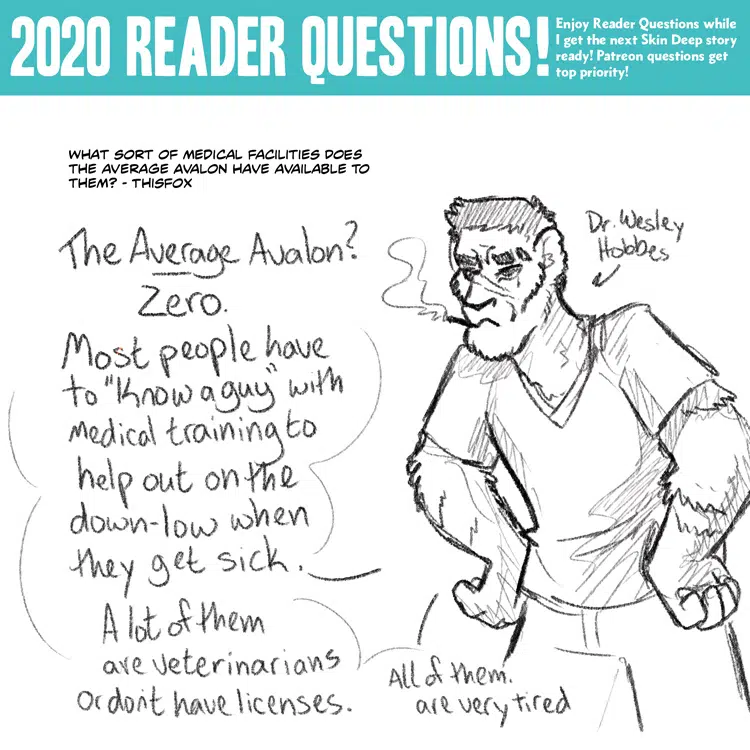 2020 READER QUESTIONS!
Enjoy Reader Questions while
I get the next Skin Deep story
ready! Patreon questions get
top priority!
WHAT SORT OF MEDICAL FACILITIES DOES
THE AVERAGE AVALON HAVE AVAILABLE TO
THEM? - THISFOX
The Average Avalon?
Zero.
Most people have
to "Know a guy" with
medical training to
help out on the
down-low when
they get sick.
A lot of them
are veterinarians
or don't have licenses.
All of them.
are very tired
Dr. Wesley
Hobbes